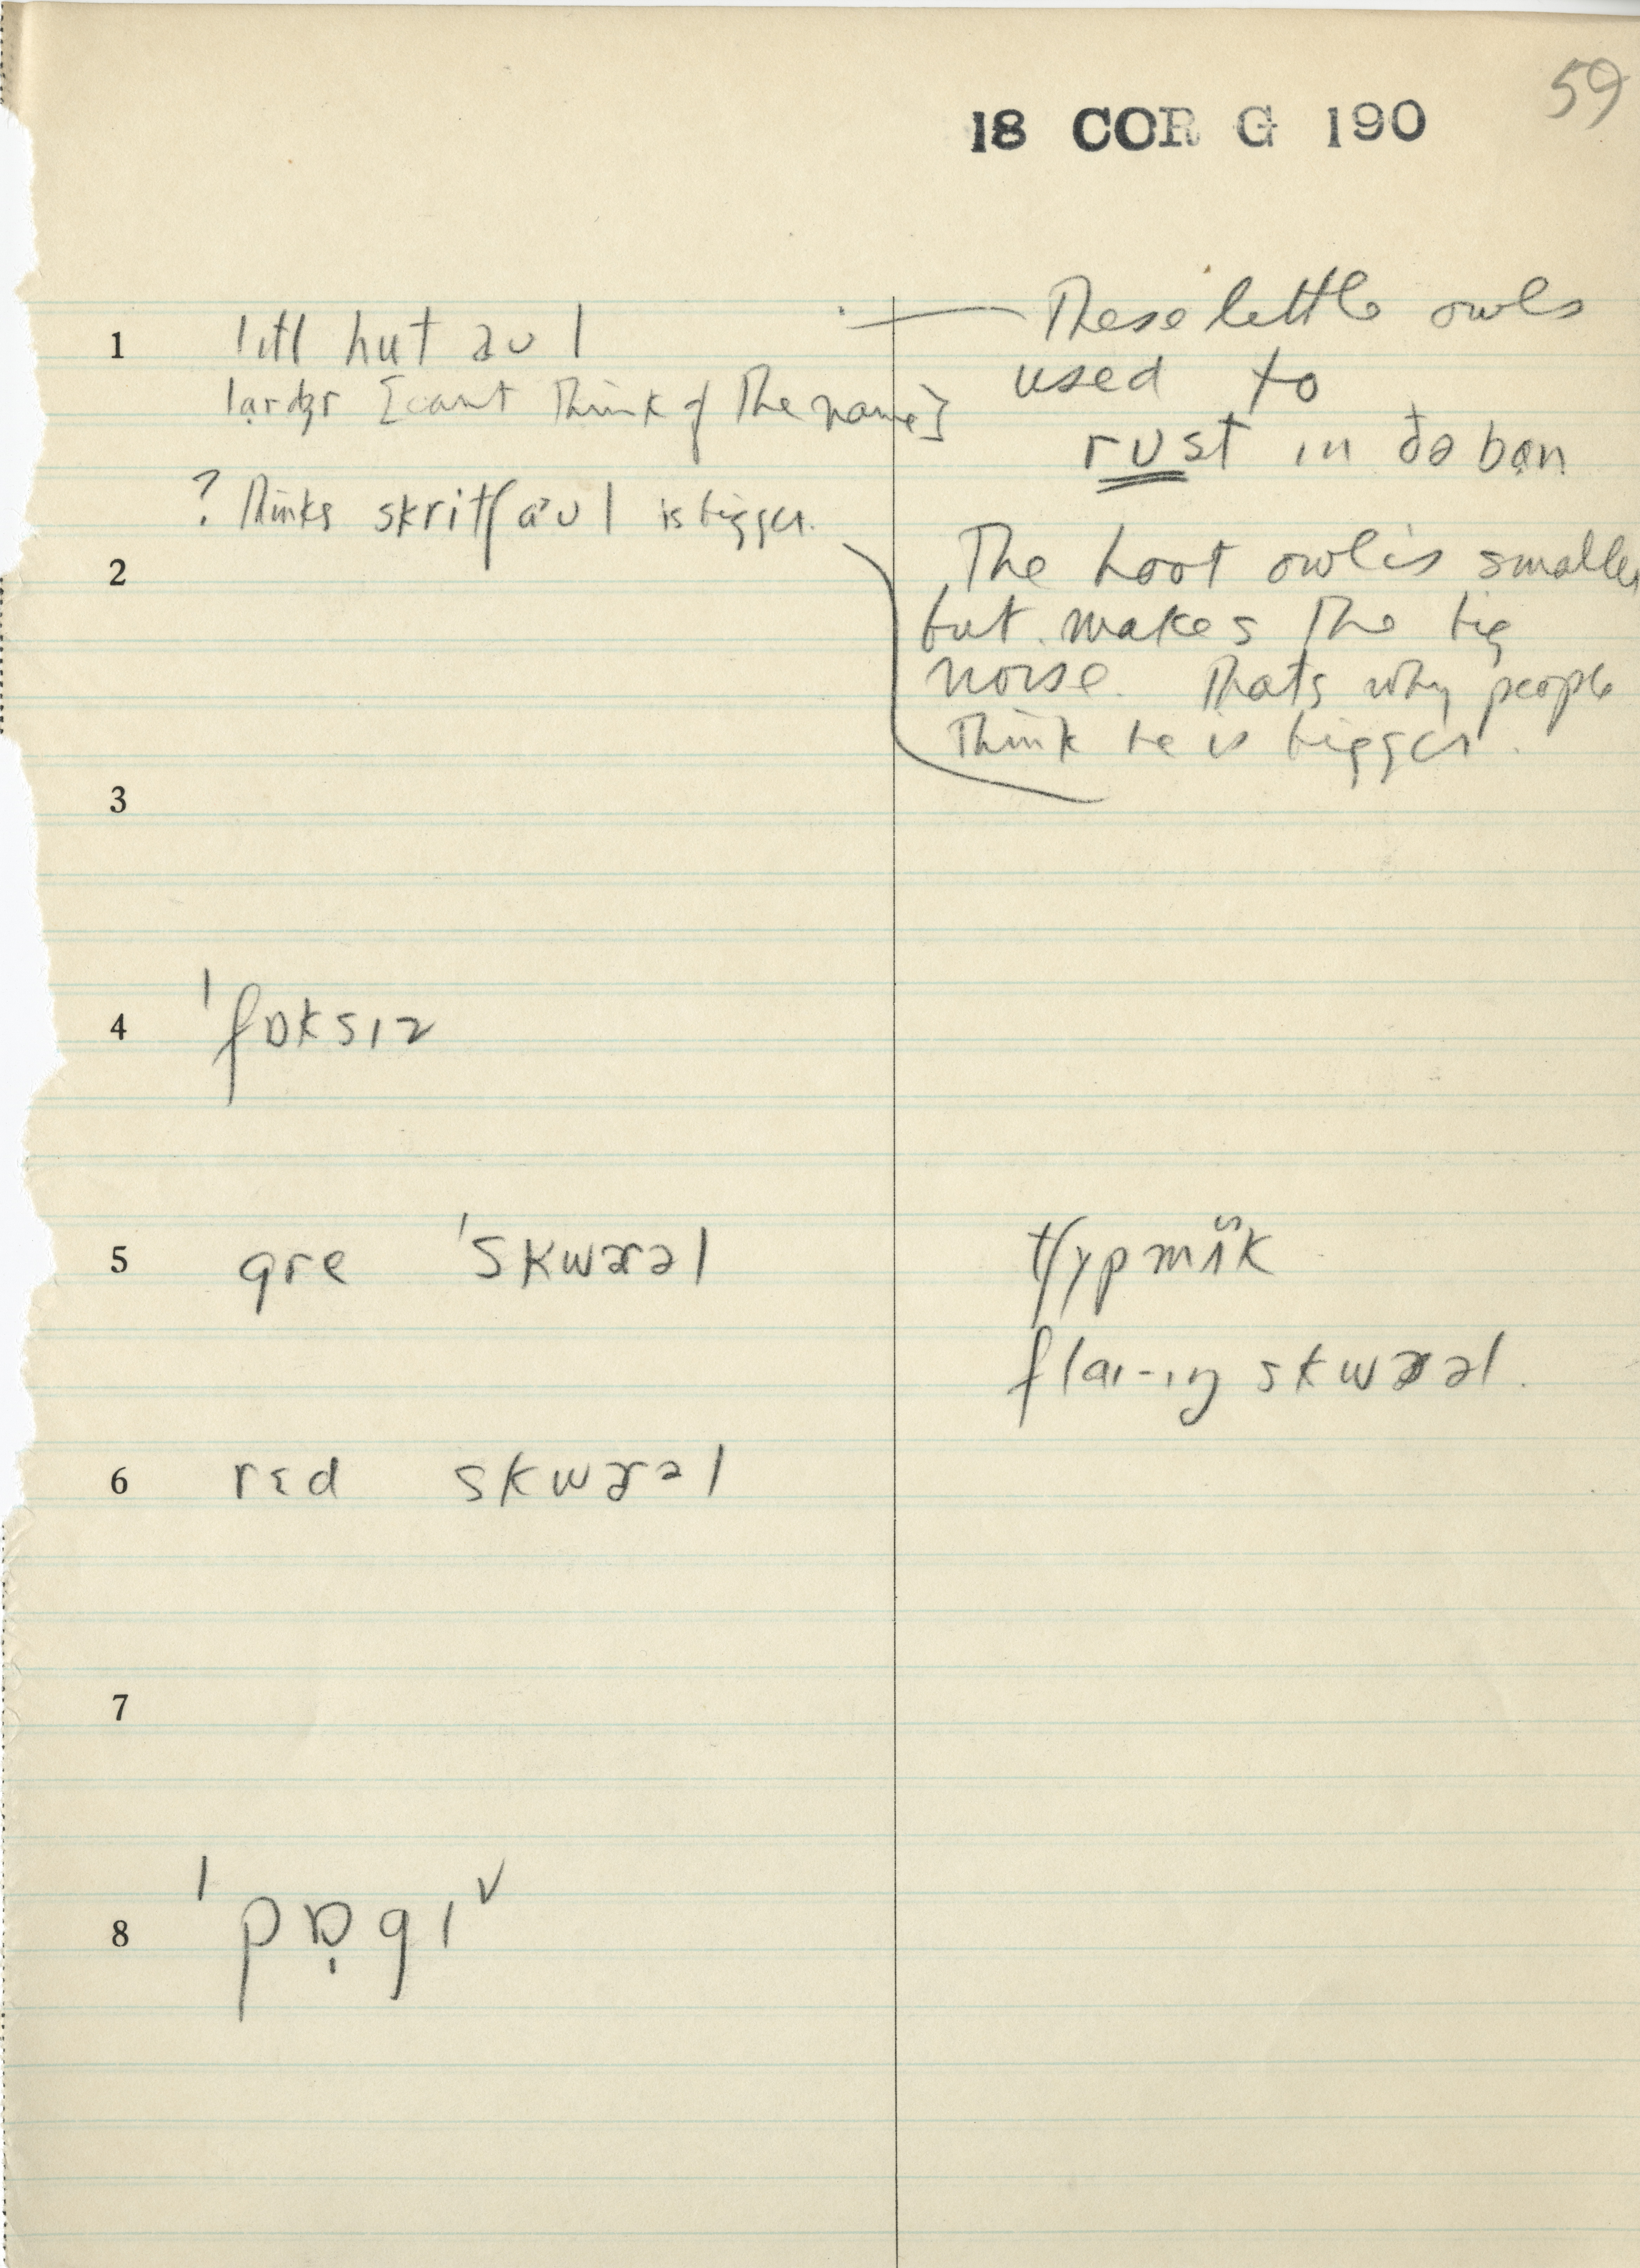 59
18 COR G 190
1 lɪtl hut aʊl
lardʒr [cant think of the name]
? thinks skritʃ aʊl is bigger.
These little owls
used to
rust in ðə ban
2
The hoot owl is smaller
but makes the big
noise. Thats why people
think he is bigger.
3
4 ˈfɒksɪz
5 gre ˈskwɜrəl
flaɪ-ɪŋ skwɜrəl.
6 rɛd skwɜrəl
7
8 ˈpɒ̣gɪ˅